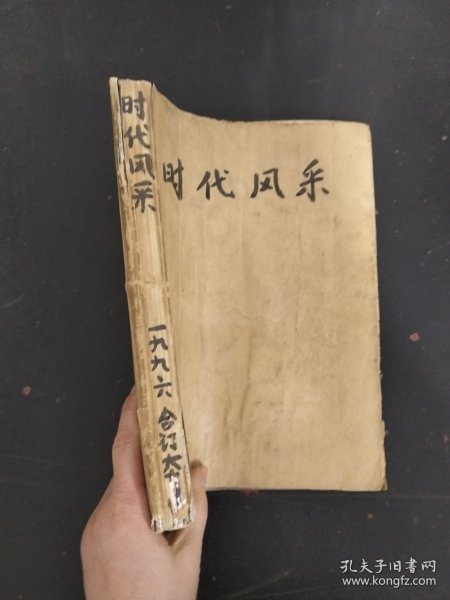 时代风采
时代风采
一九九六 合订本
孔夫子旧书网
www.kongfz.com